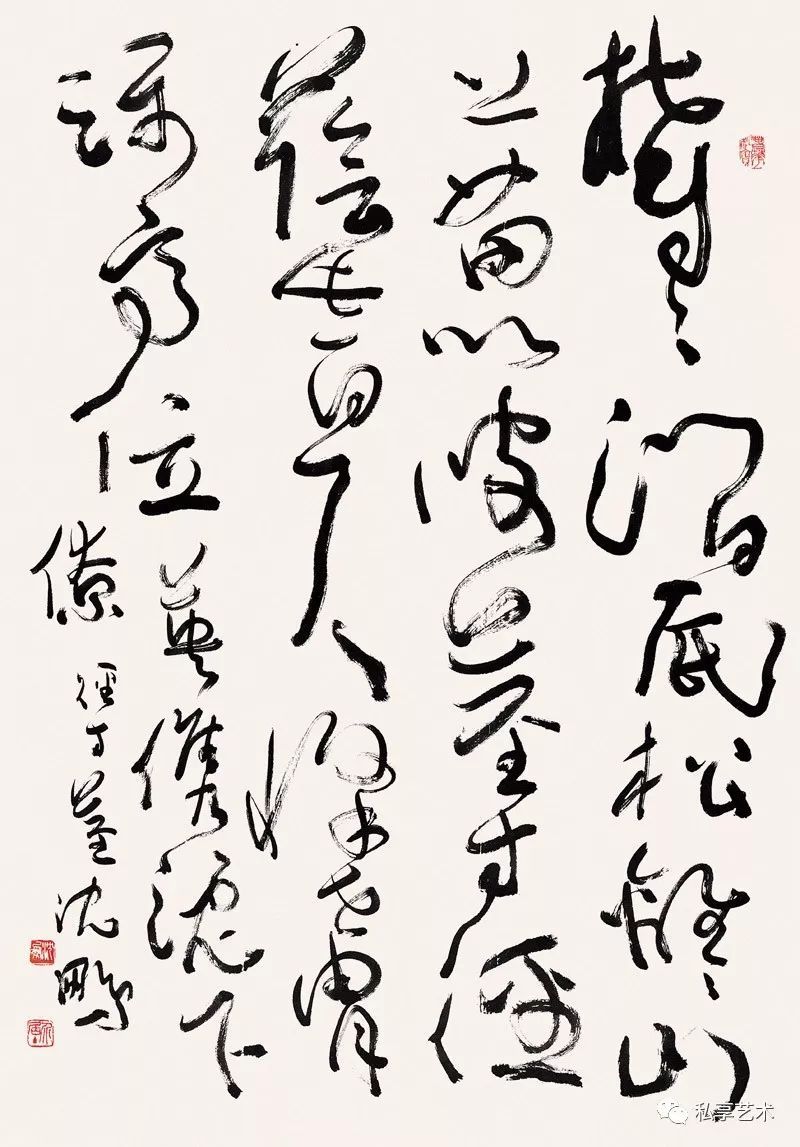 鬱〻澗底松離〻山
上苗以彼莖寸徑
蔭此百尺條世胄
躡高位英儁沈下
僚 徑寸莖 沈鵬
私享艺术